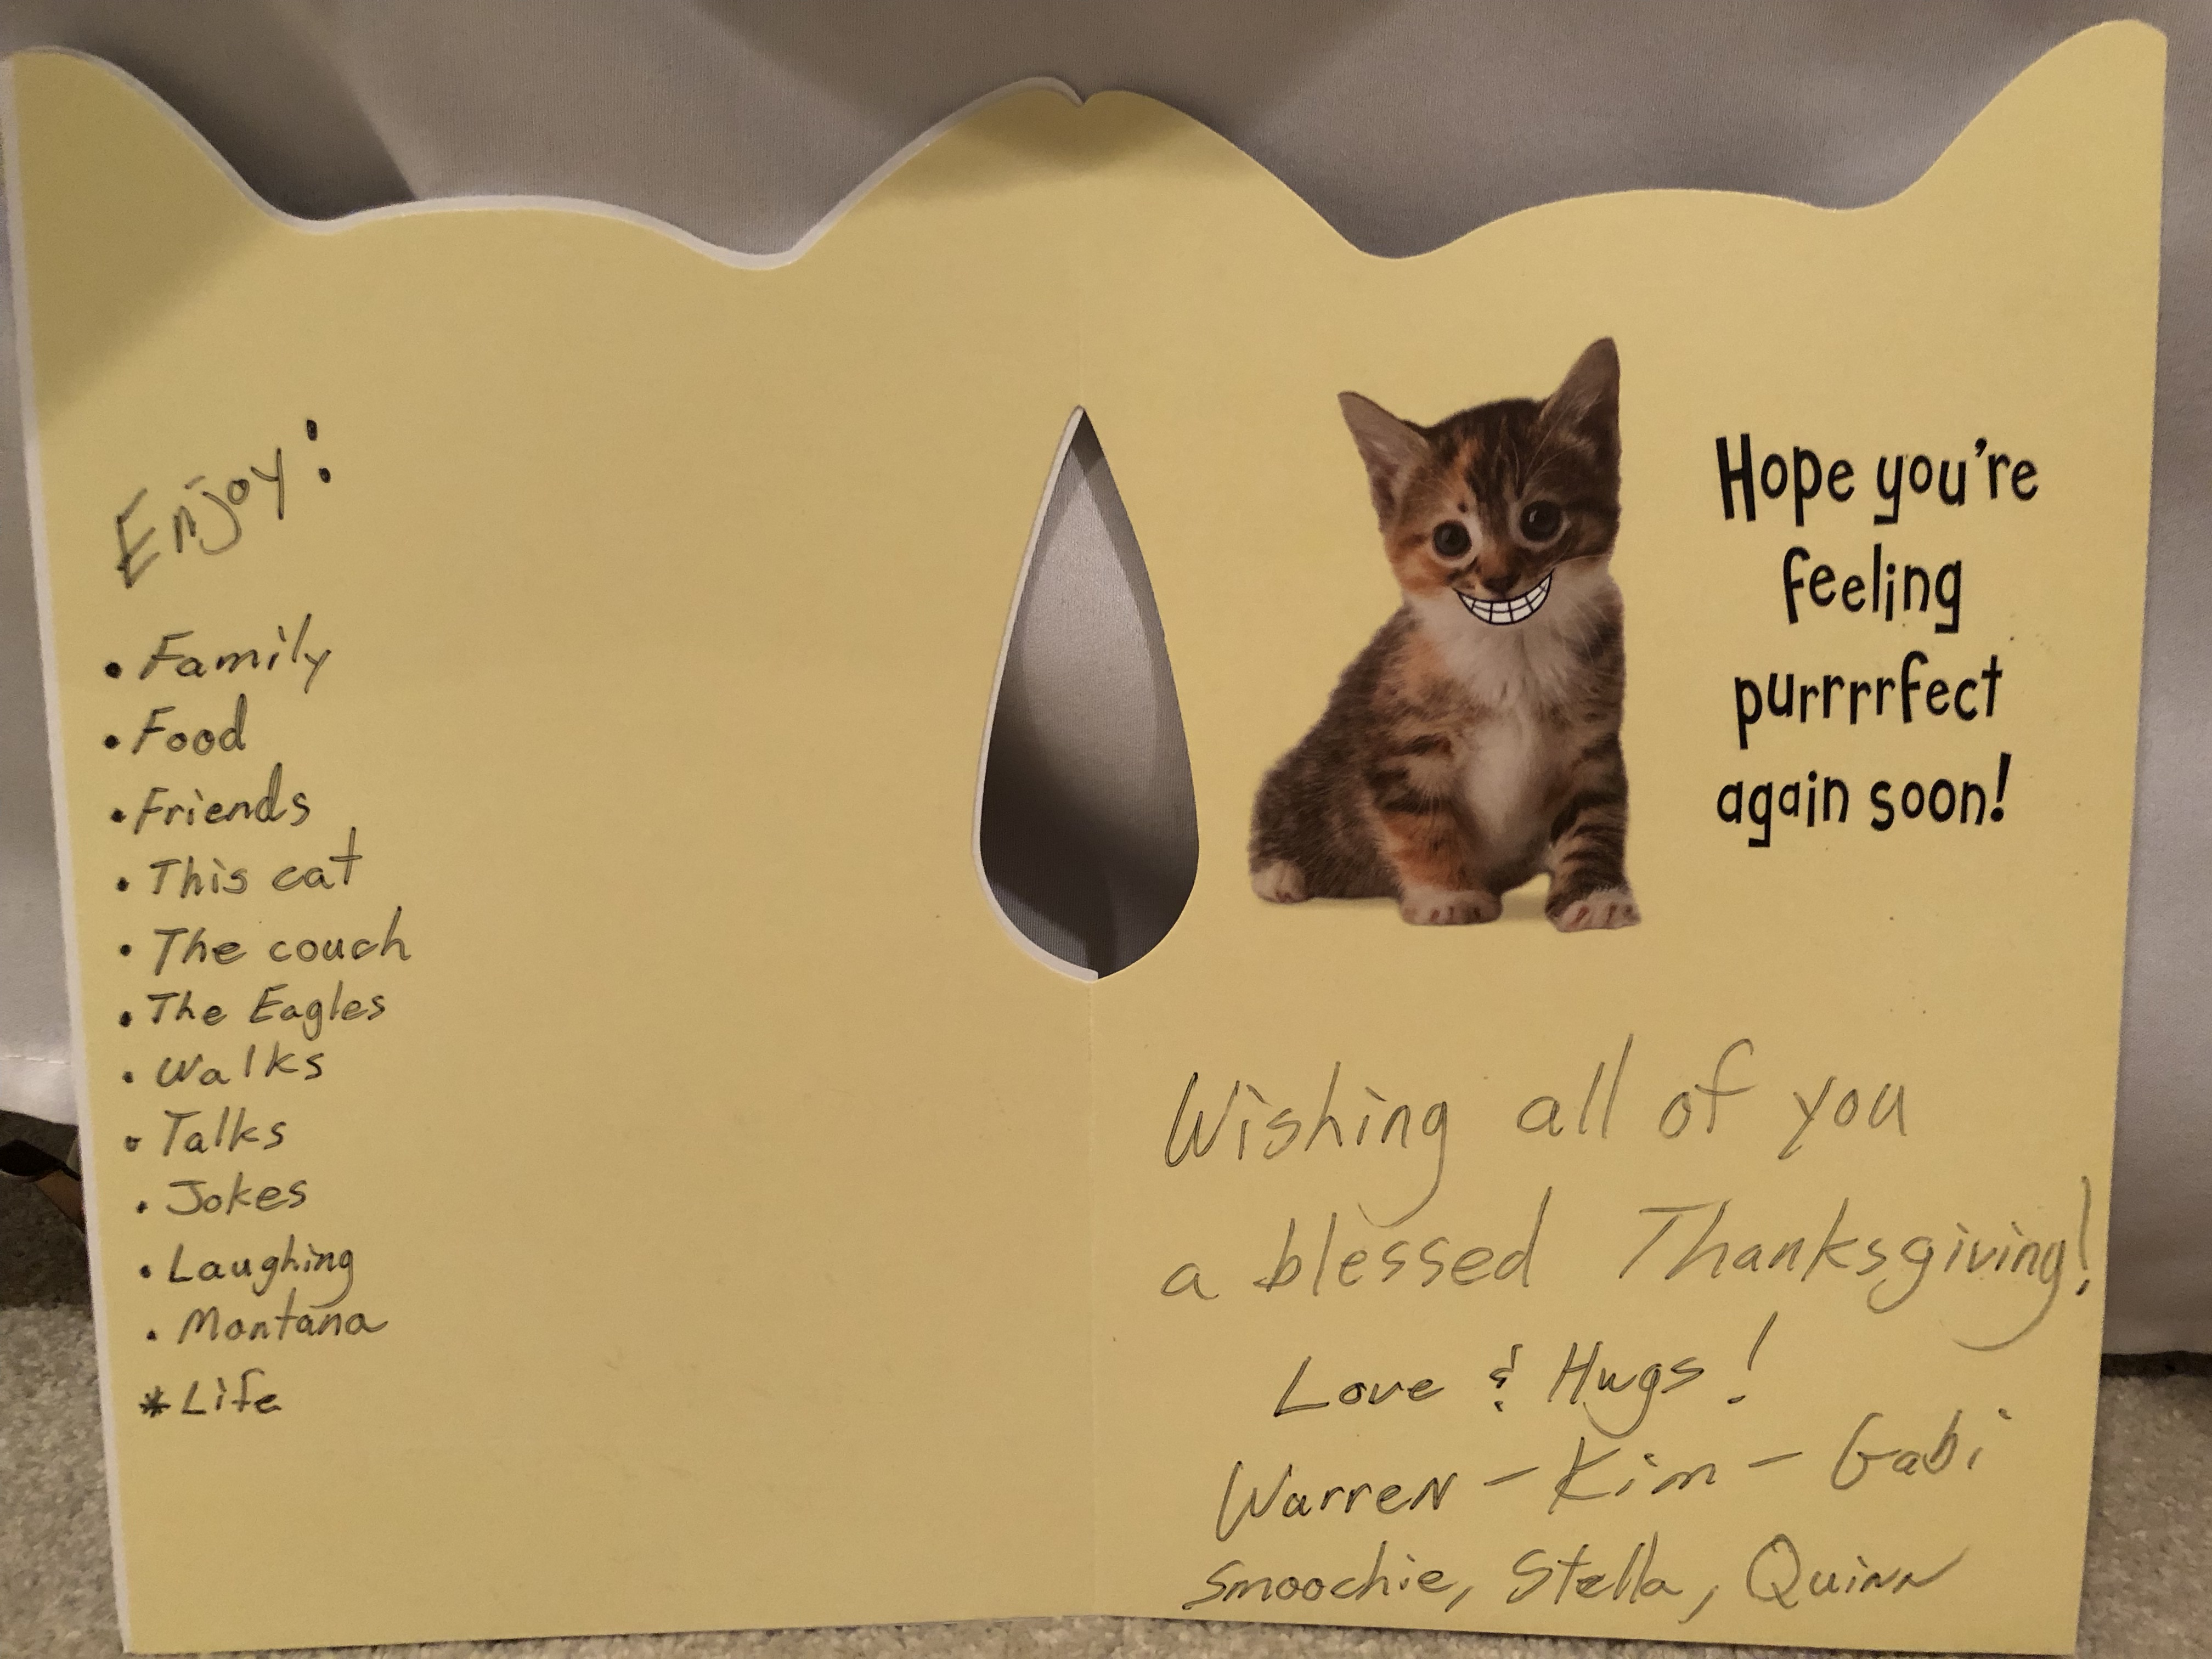 Enjoy:
• Family
• Food
• Friends
• This cat
• The couch
• The Eagles
• Walks
• Talks
• Jokes
• Laughing
• Montana
* Life
Hope you're
feeling
purrrrfect
again soon!
Wishing all of you
a blessed Thanksgiving!
Love & Hugs!
Warren - Kim - Gabi
Smoochie, Stella, Quinn